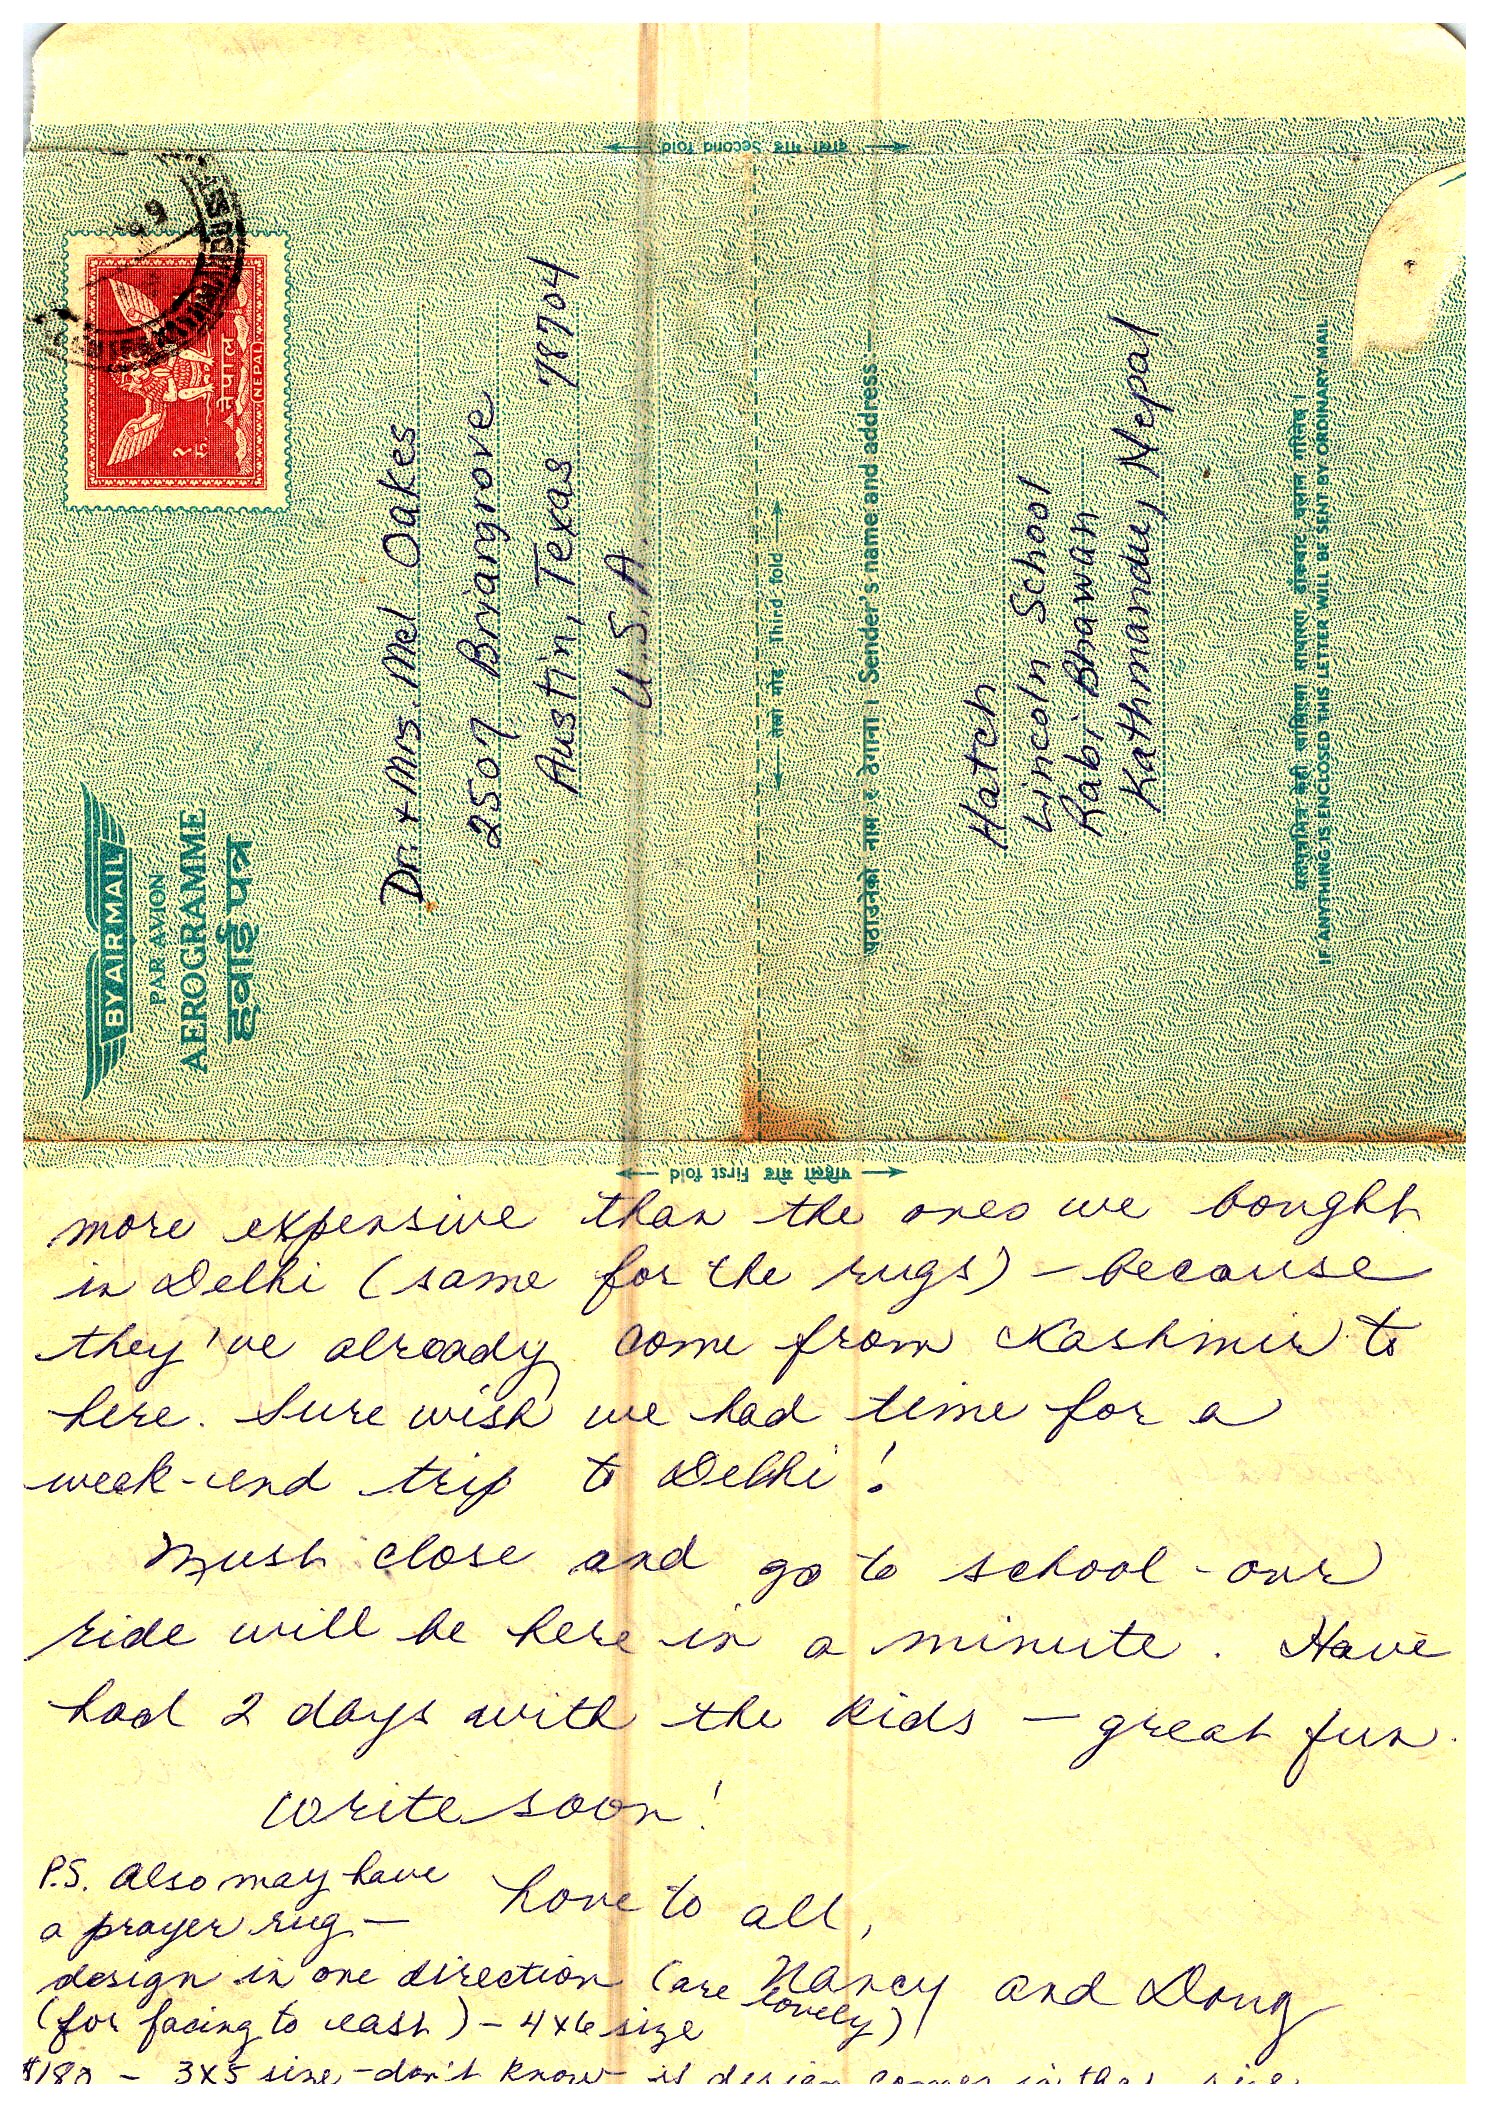 दोस्रो मोड Second fold
नेपाल
(NEPAL)
२
रु.
BY AIR MAIL
PAR AVION
AEROGRAMME
हवाई पत्र
Dr. + Mrs. Mel Oakes
2507 Briargrove
Austin, Texas 78704
U.S.A.
तेस्रो मोड Third fold
पठाउनेको नाम र ठेगाना । Sender's name and address
Hatch
Lincoln School
Rabi Bhawan
Kathmandu, Nepal
IF ANYTHING IS ENCLOSED THIS LETTER WILL BE SENT BY ORDINARY MAIL
पहिलो मोड First fold
more expensive than the ones we bought
in Delhi (same for the rugs) – because
they've already come from Kashmir to
here. Sure wish we had time for a
week-end trip to Delhi!
Must close and go to school - our
ride will be here in a minute. Have
had 2 days with the kids – great fun.
Write soon!
Love to all,
Nancy and Doug
P.S. Also may have
a prayer rug –
design in one direction (are lovely)
(for facing to east) – 4x6 size
$180 – 3x5 size – don't know if design comes in that size